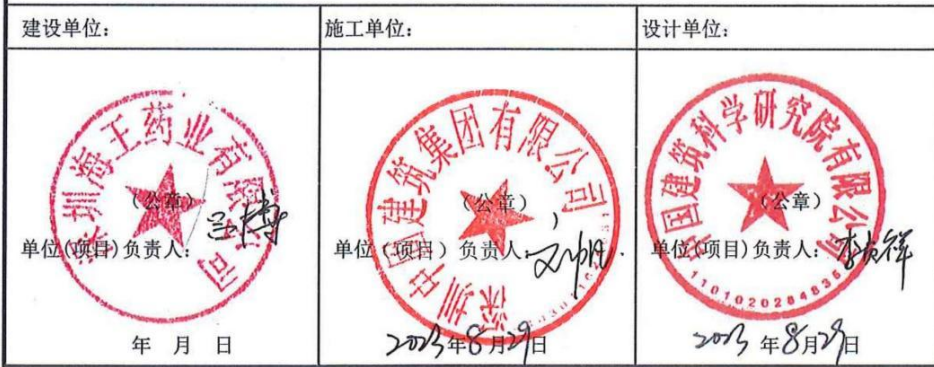 建设单位：
施工单位：
设计单位：
深圳海王药业有限公司
（公章）
单位(项目)负责人：
年 月 日
深圳中国建筑集团有限公司
（公章）
单位（项目）负责人：
2023年8月29日
中国建筑科学研究院有限公司
（公章）
单位(项目)负责人：
2023年8月29日